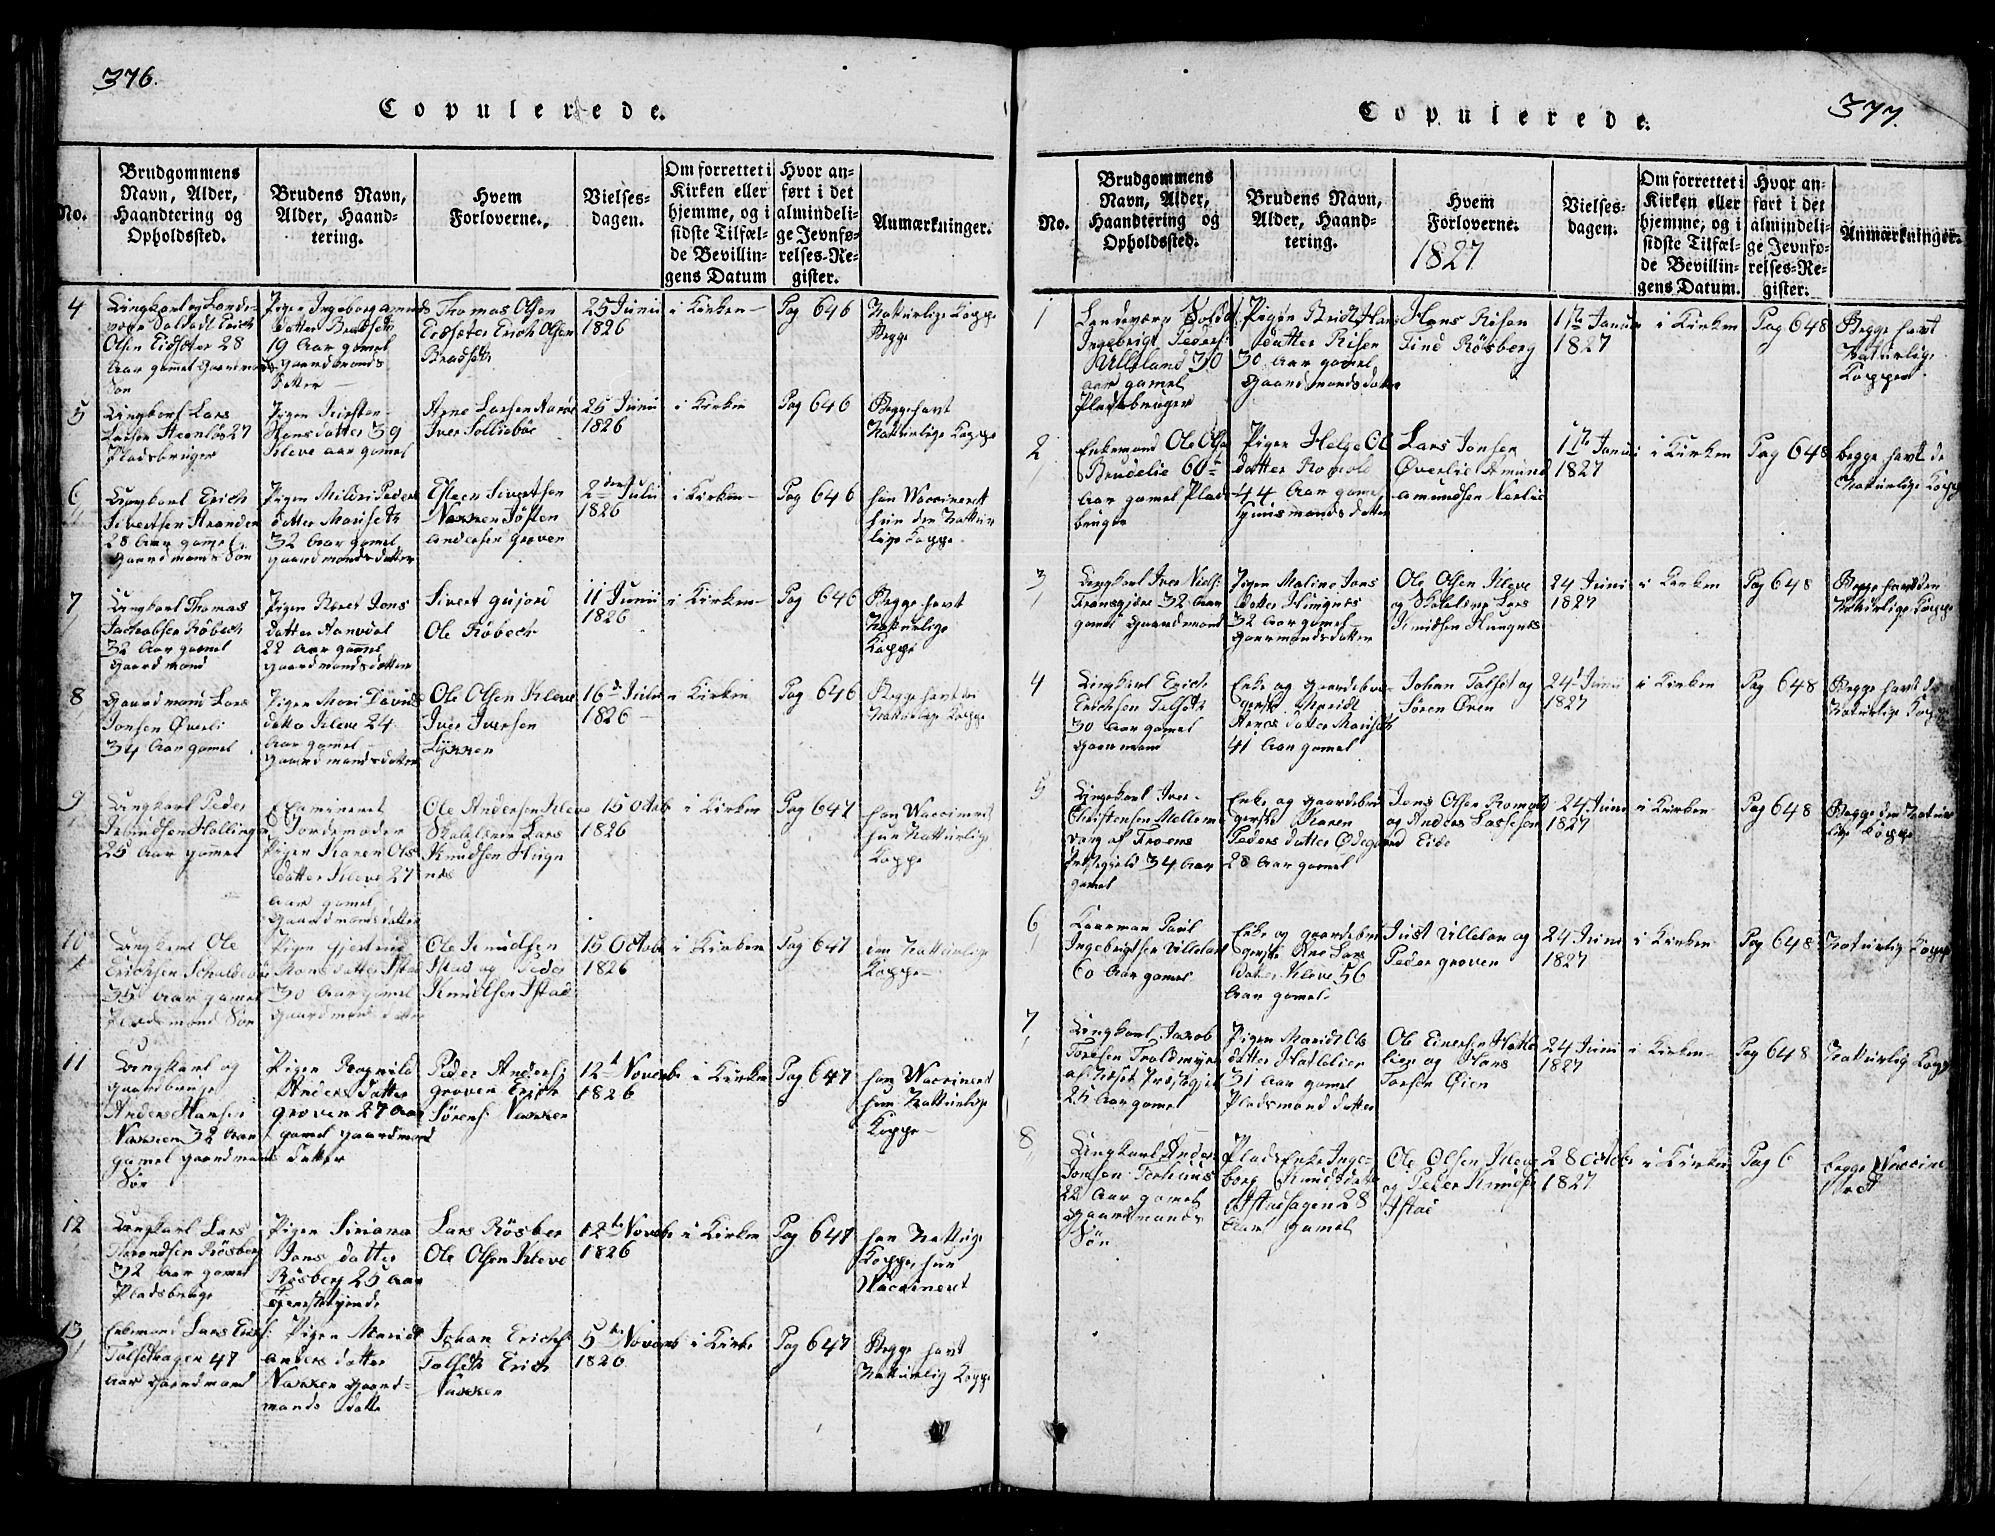 376.
Copulerede.
No.
Brudgommens
Navn, Alder,
Haandtering og
Opholdssted.
Brudens Navn,
Alder, Haand-
tering.
Hvem
Forloverne.
Vielses-
dagen.
Om forrettet i
Kirken eller
hjemme, og i
sidste Tilfæl-
de Bevillin-
gens Datum
Hvor an-
ført i det
almindeli-
ge Jevnfø-
relses-Re-
gister.
Anmærkninger.
4
Ungkarl og Lande-
værn Soldadt Erich
Olsen Eidseter 28
Aar gamel Gaardmands
Søn
Pigen Ingeborg
datter Bradseth
19 Aar gamel
gaardmands
datter
Thomas Olsen
Eidseter Erich Olsen
Bradseth
25 Junii
1826
i Kirken
Pag 646
Naturlige Kopper
Begge
5
Ungkarl Lars
Larsen 27
Pladsbruger
Pigen Kirsten
Hansdatter 39
Kleve aar gamel
Arne Larsen
Iver Sollisbøe
25 Junii
1826
i Kirken
Pag 646
Begge havt
Naturlige Koppe
6
Ungkarl Erich
Sivertsen Aranden
28 Aar gamel
gaardmands Søn
Pigen Mildri Peders
datter Mariseth
32 Aar gamel
gaardmandsdatter
Esten Sivertsen
Naxxen Tøsten
andersen Groven
2den Julii
1826
i Kirken
Pag 646
han Waccineret
hun den Natur
lige Koppe
7
Ungkarl Thomas
Jachobsen Røbech
32 Aar gamel
gaardmand
Pigen Beret Jons
datter
22 Aar gamel
gaardmandsdatter
Sivert gujord
Ole Røbech
11 Junii
1826
i Kirken
Pag 646
Begge havt
Naturlige
Koppe
8
Gaardmand Lars
Jonsen Øverli
34 Aar gamel
Pigen Mari Davids
datter Kleve 24
Aar gamel
gaardmandsdatter
Ole Olsen Kleve
Iver Iversen
Lyxxen
16d Julii
1826
i Kirken
Pag 646
Begge havt de
Naturlige Koppe
9
Ungkarl Peder
Knudsen Hollingen
25 Aar gamel
Examineret
Jordemoder
Pigen Karen Ols
datter Kleve 27
aar gamel
gaardmandsdatter
Ole Andersen Kleve
Skolelærer Lars
Knudsen Hugn
nes
15 Octob
1826
i Kirken
Pag 647
han Waccineret
hun Natturlige
Koppe
10
Ungkarl Ole
Erichsen
35 Aar gamel
Pladsmand Søn
Pigen Gjertrud
Hansdatter Istad
30 Aar gamel
gaardmands datter
Ole Knudsen
Istad og Peder
Knudsen Istad
15 Octob
1826
i Kirken
Pag 647
den Natturlige
Koppe
11
Ungkarl og
gaardbruger
Anders Hansen
Naxxen 32 Aar
gamel gaardmands
Søn
Pigen Ragnild
Anders datter
Groven 27 Aar
gamel gaardmand
datter
Peder Anders:
groven Erich
Sørens: Naxxen
12t Novemb
1826
i Kirken
Pag 647
han Waccineret
hun Natturlige
Koppe
12
Ungkarl Lars
Røsberg
32 Aar gamel
Pladsbruge
Pigen Siriana
Jons datter
Røsberg 25 Aar
tjenstetyende
Lars Røsber
Ole Olsen Kleve
12te Novbr
1826
i Kirken
Pag 647
han Nattige
Koppe, hun
Waccineret
13
Enkemand Lars Erics:
Talsethagen 47
aar gaardmand
Pigen Maridt
anders datter
Naxxen gaard-
mands datte
Johan Erichs:
Talseth Erich
Naxxen
5te Novmb
1826
i Kirke
Pag 647
Begge havt
Naturlig Koppe
377.
Copulerede.
No.
Brudgommens
Navn, Alder,
Haandtering og
Opholdssted.
Brudens Navn,
Alder, Haand-
tering.
Hvem
Forloverne.
1827
Vielses-
dagen.
Om forrettet i
Kirken eller
hjemme, og i
sidste Tilfæl-
de Bevillin-
gens Datum.
Hvor an-
ført i det
almindeli-
ge Jevnfø-
relses-Re-
gister.
Anmærkninger.
1
Landeværn Soldat
Ingebrigt Peders:
Ulleland 30
aar gamel
Pladsbruger
Pigen Bridt Hans
datter Risen
30 Aar gamel
gaardmandsdatter
Hans Risen
Tind Røsberg
17de Januar
1827
i Kirken
Pag 648
Begge havt
Naturlige
Kopper
2
Enkemand Ole Olsen
Brudelie 60
Aar gamel Plads
bruger
Pigen Helge Ol
datter Romold
44 Aar gamel
huusmandsdatter
Lars Jonsen
Øverlie Amund
amundsen Varlie
17de Januar
1827
i Kirken
Pag 648
begge havt de
Naturlige Kopp
3
Ungkarl Iver Niels:
Transgjøre 32 Aar
gamel gaardmand
Pigen Maline Jons
datter Hungnes
32 Aar gamel
gaarmandsdatter
Ole Olsen Kleve
og Skolelærer Lars
Knudsen Hungnes
24 Juni
1827
i Kirken
Pag 648
Begge havt den
Naturlige Koppe
4
Ungkarl Erich
Erichsen Talseth
30 Aar gamel
gaarmand
Enke og gaardebru
gerske Maridt
Arnes datter Mariseth
41 Aar gamel
Johan Talset og
Søren Øren
24d Junii
1827
i Kirken
Pag 648
Begge havt den
Naturlige Koppe
5
Ungekarl Iver
Christensen Mellem
vang af Froens
Præstegield 34 Aar
gamel
Enke og Gaardebru
gerske Karen
Peders datter Ødegaard
28 Aar gamel
Jens Olsen Romold
og Anders Lassesen
Eide
24 Juni
1827
i Kirken
Pag 648
Begge den Natur
lige Koppe
6
Kaarman Paul
Ingebrigtsen Villeland
60 Aar gamel
Enke og gaardebru
gerske Ane Lars
datter Kleve 56
Aar gamel
Just Villelan og
Peder groven
24 Juni
1827
i Kirken
Pag 648
Naturlig Koppe
7
Ungkarl Jakob
Toresen Traldmyr
af Næset Præstgjel
25 Aar gamel
Pigen Maridt Ols
datter Hatlelien
31 Aar gamel
Pladsmand datter
Ole Einersen Hatle
lien og Hans
Torsen Øien
24 Junii
1827
i Kirken
Pag 648
Naturlig Kopp
8
Ungkarl Anders
Jonsen
22 Aar gamel
gaardmands
Søn
Plads Enke Inge-
borg Knudsdatter
Istadhagen 28
Aar gamel
Ole Olsen Kleve
og Peder Knudsen
Istad
28 Octobr
1827
i Kirken
Pag 6
begge Waccine
ret